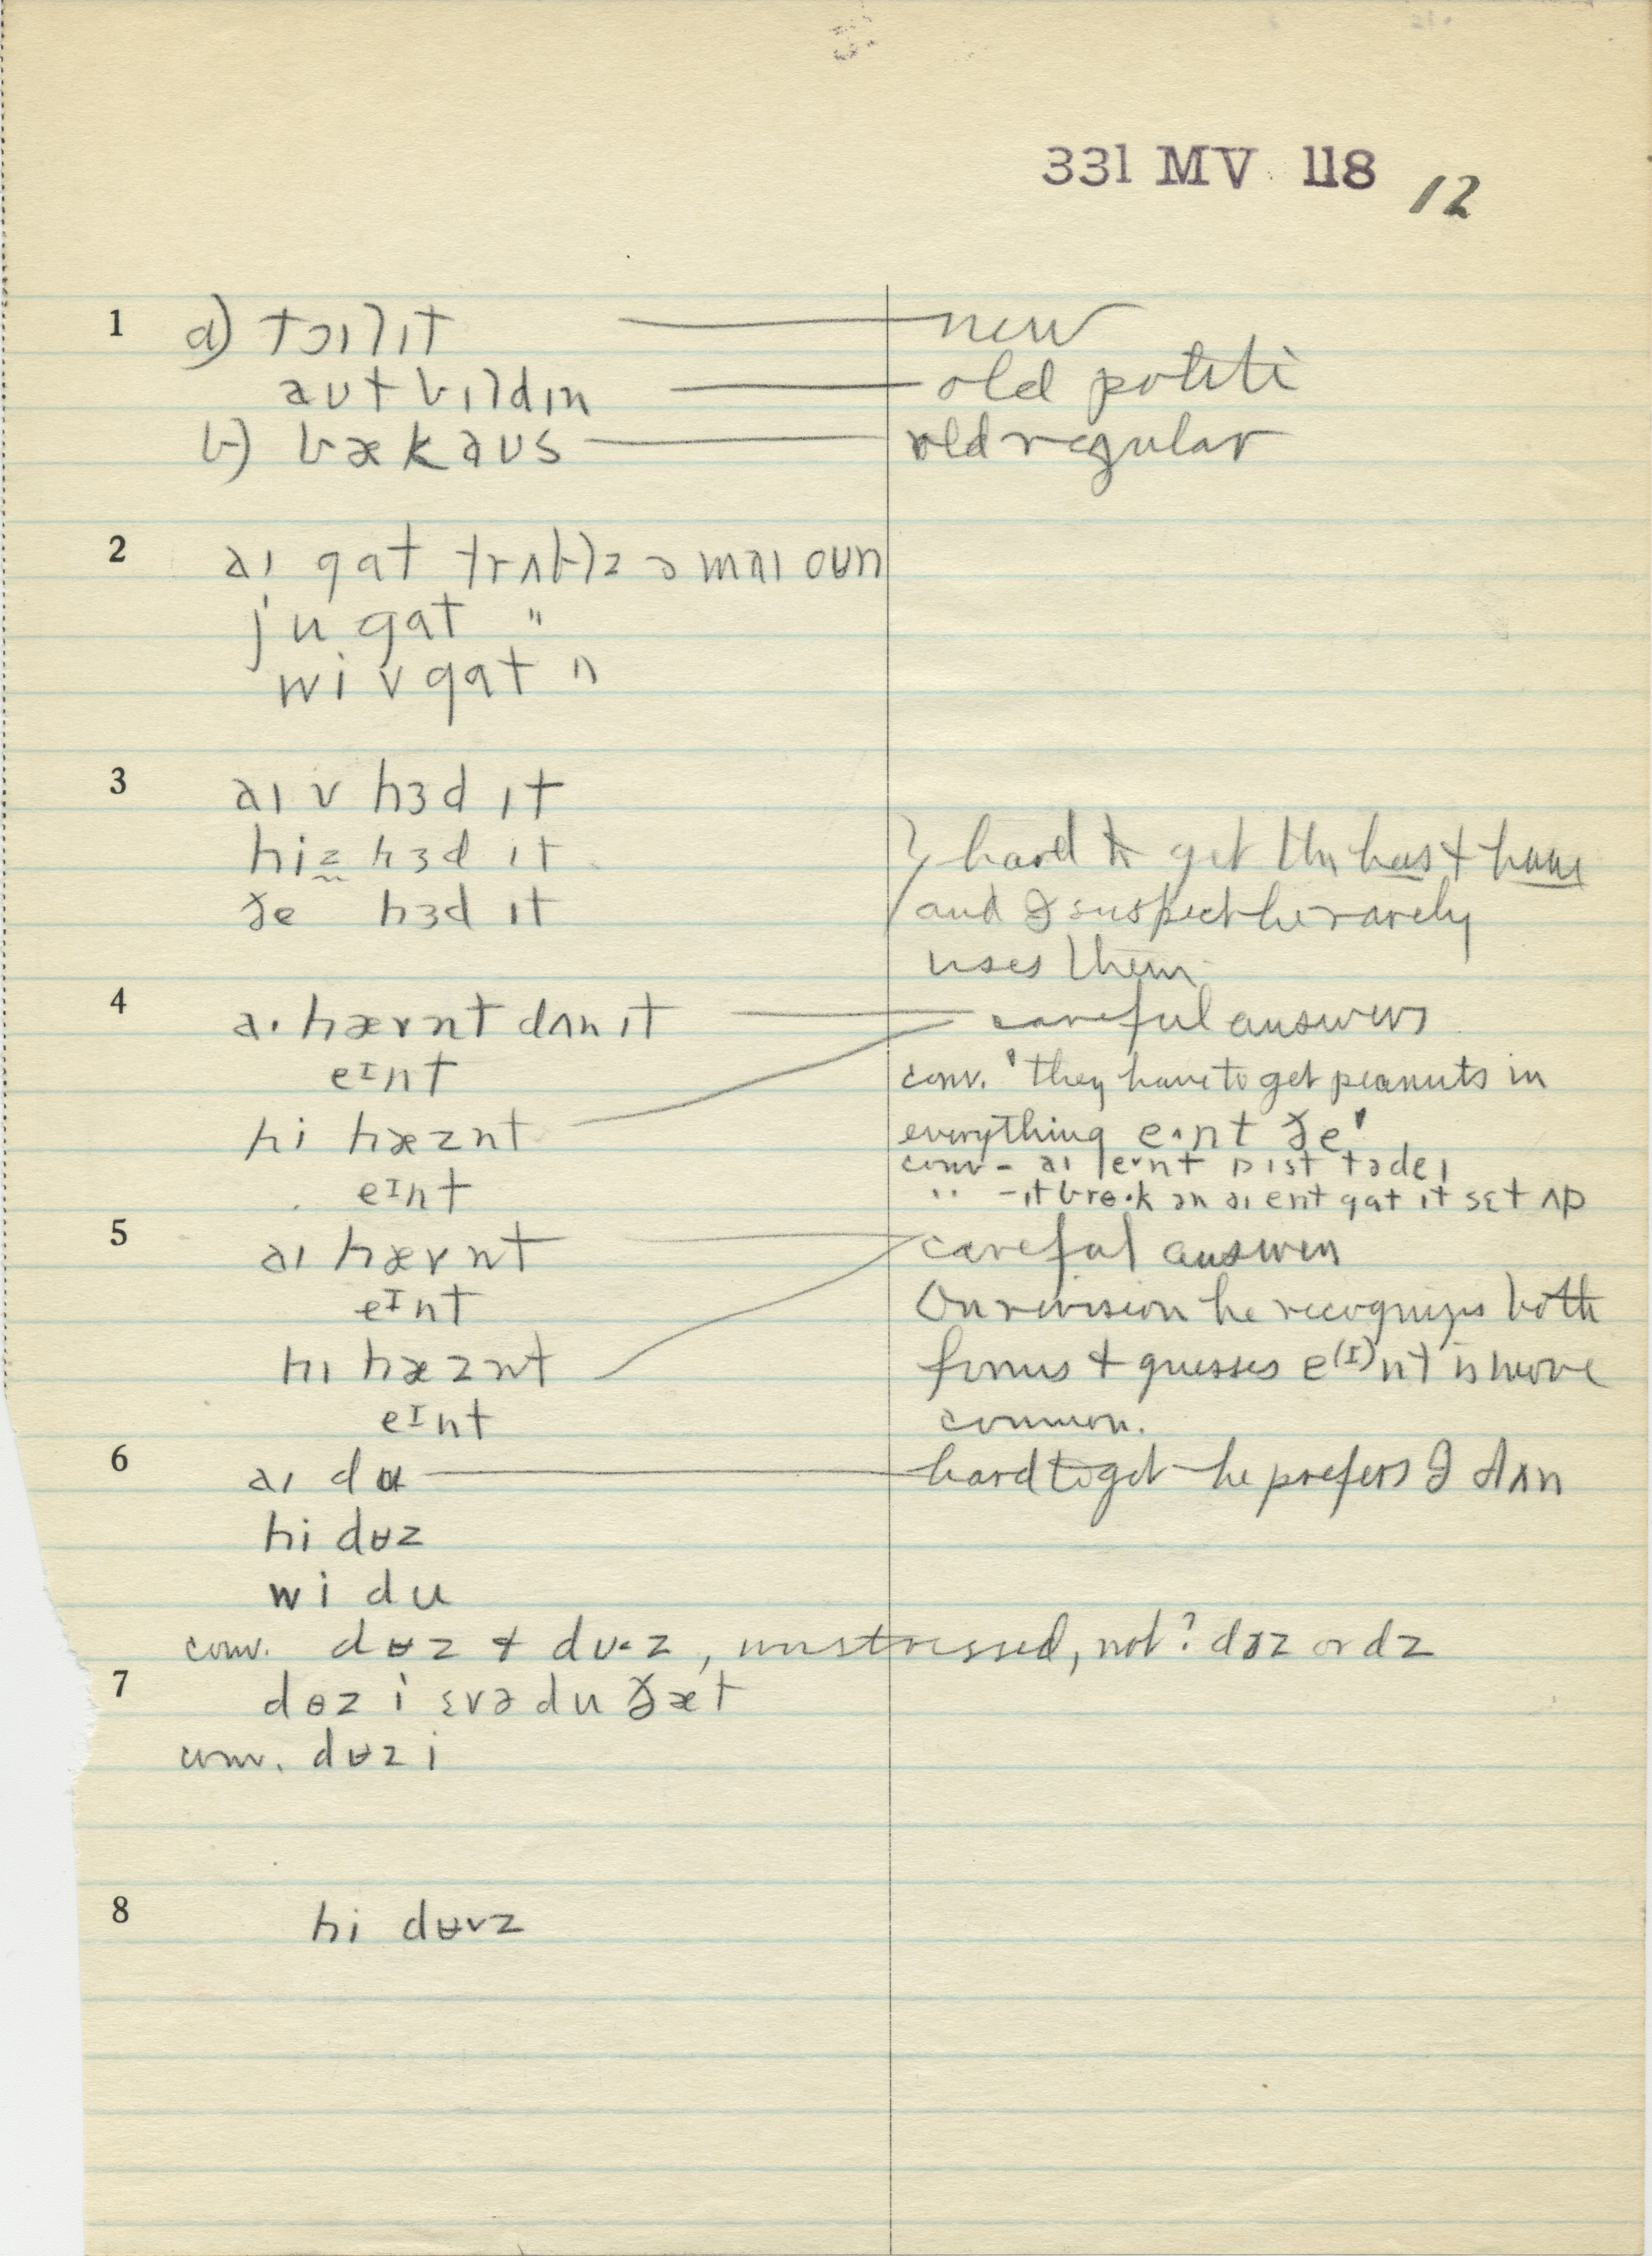 331 MV 118 12
1 a) tɔɪlɪt — new
aʊt bɪldɪn — old polite
b) bækaʊs — old regular
2 aɪ gat trʌblz ə maɪ oʊn
ju gat "
wi v gat "
3 aɪ v hɜd ɪt
hiz hɜd ɪt } hard to get the has & have
ðe hɜd ɪt and I suspect he rarely
uses them
4 aɪ hævnt dʌn ɪt — careful answers
eɪnt conv. "they have to get peanuts in
hi hæznt everything eˑnt ðe"
conv - aɪ eɪnt pɪst tədeɪ
eɪnt " - ɪt breˑk ən aɪ ent gat ɪt sɛt ʌp
5 aɪ hævnt careful answers
eɪnt On revision he recognizes both
hɪ hæznt forms & guesses e(ɪ)nt is more
eɪnt common.
6 aɪ du — hard to get — he prefers I dʌn
hi dʉz
wi du
conv. dʉz & dʊ˂z, unstressed, not? dəz or dz
7 dɵz i ɛvə du ðæt
conv. dʉz i
8 hi dʉvz